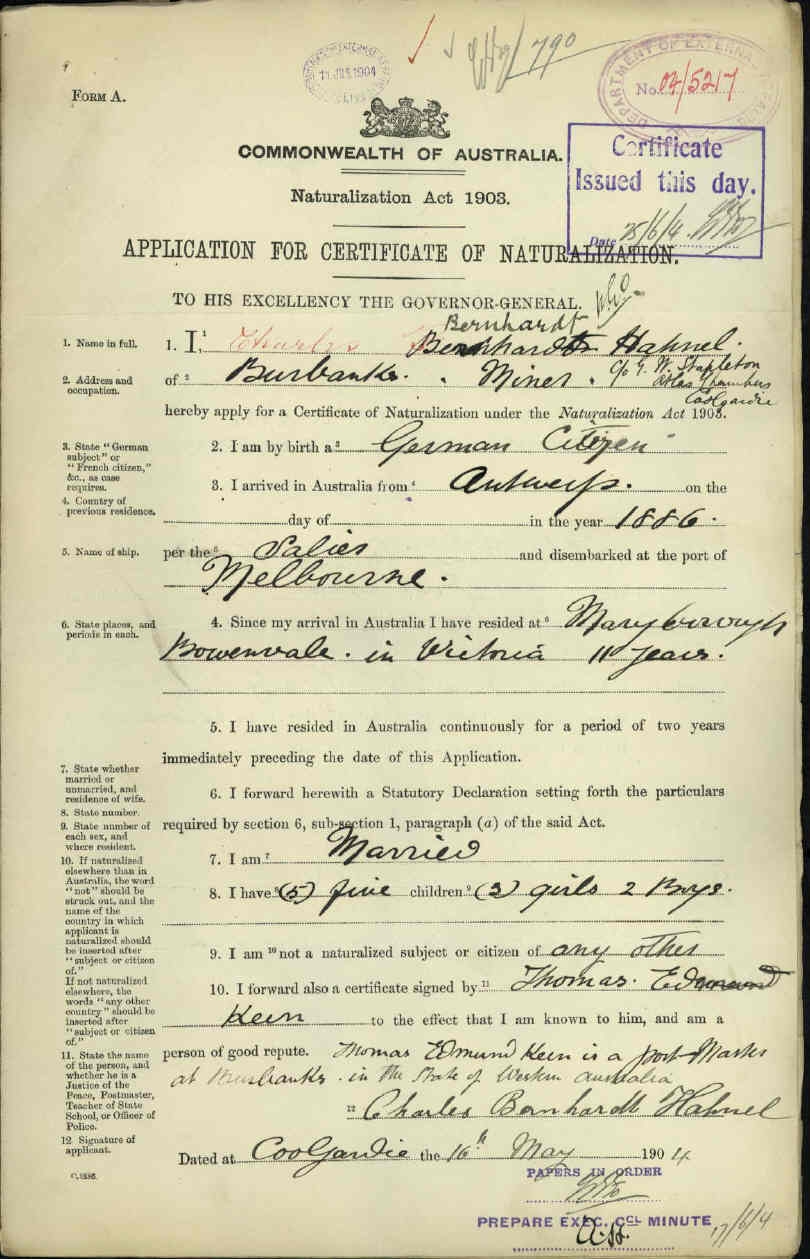 790
11 JUN 1904
DEPARTMENT OF EXTERNAL
No. 04/5217
FORM A.
COMMONWEALTH OF AUSTRALIA.
Certificate
Issued this day.
Date 25/6/4
Naturalization Act 1903.
APPLICATION FOR CERTIFICATE OF NATURALIZATION.
TO HIS EXCELLENCY THE GOVERNOR-GENERAL.
Bernhardt
1. Name in full.
1. I,¹ Charles Bernhardt Hahnel.
2. Address and occupation.
of ² Burbanks. Miner. c/o G. W. Stapleton
Atlas Chambers
Coolgardie
hereby apply for a Certificate of Naturalization under the Naturalization Act 1903.
3. State "German
subject" or
"French citizen,"
&c., as case
requires.
2. I am by birth a ³ German Citizen
4. Country of
previous residence.
3. I arrived in Australia from ⁴ Antwerp. on the
day of in the year 1886.
5. Name of ship.
per the ⁵ Salies and disembarked at the port of
Melbourne.
6. State places, and
periods in each.
4. Since my arrival in Australia I have resided at ⁶ Maryborough
Bowenvale. in Victoria 11 years.
5. I have resided in Australia continuously for a period of two years
immediately preceding the date of this Application.
7. State whether
married or
unmarried, and
residence of wife.
8. State number.
9. State number of
each sex, and
where resident.
6. I forward herewith a Statutory Declaration setting forth the particulars
required by section 6, sub-section 1, paragraph (a) of the said Act.
7. I am ⁷ Married
8. I have ⁸ (5) five children ⁹ (3) girls 2 Boys.
10. If naturalized
elsewhere than in
Australia, the word
"not" should be
struck out, and the
name of the
country in which
applicant is
naturalized should
be inserted after
"subject or citizen
of."
If not naturalized
elsewhere, the
words "any other
country" should be
inserted after
"subject or citizen
of."
9. I am ¹⁰ not a naturalized subject or citizen of any other
10. I forward also a certificate signed by ¹¹ Thomas. Edmund
Keen to the effect that I am known to him, and am a
person of good repute. Thomas Edmund Keen is a post-Master
at Burbanks. in the State of Western Australia
11. State the name
of the person, and
whether he is a
Justice of the
Peace, Postmaster,
Teacher of State
School, or Officer of
Police.
12 Signature of
applicant.
¹² Charles Bernhardt Hahnel
Dated at CoolGardie the 16th May 1904
C.1386.
PAPERS IN ORDER
PREPARE EXEC. CCL MINUTE
17/6/4